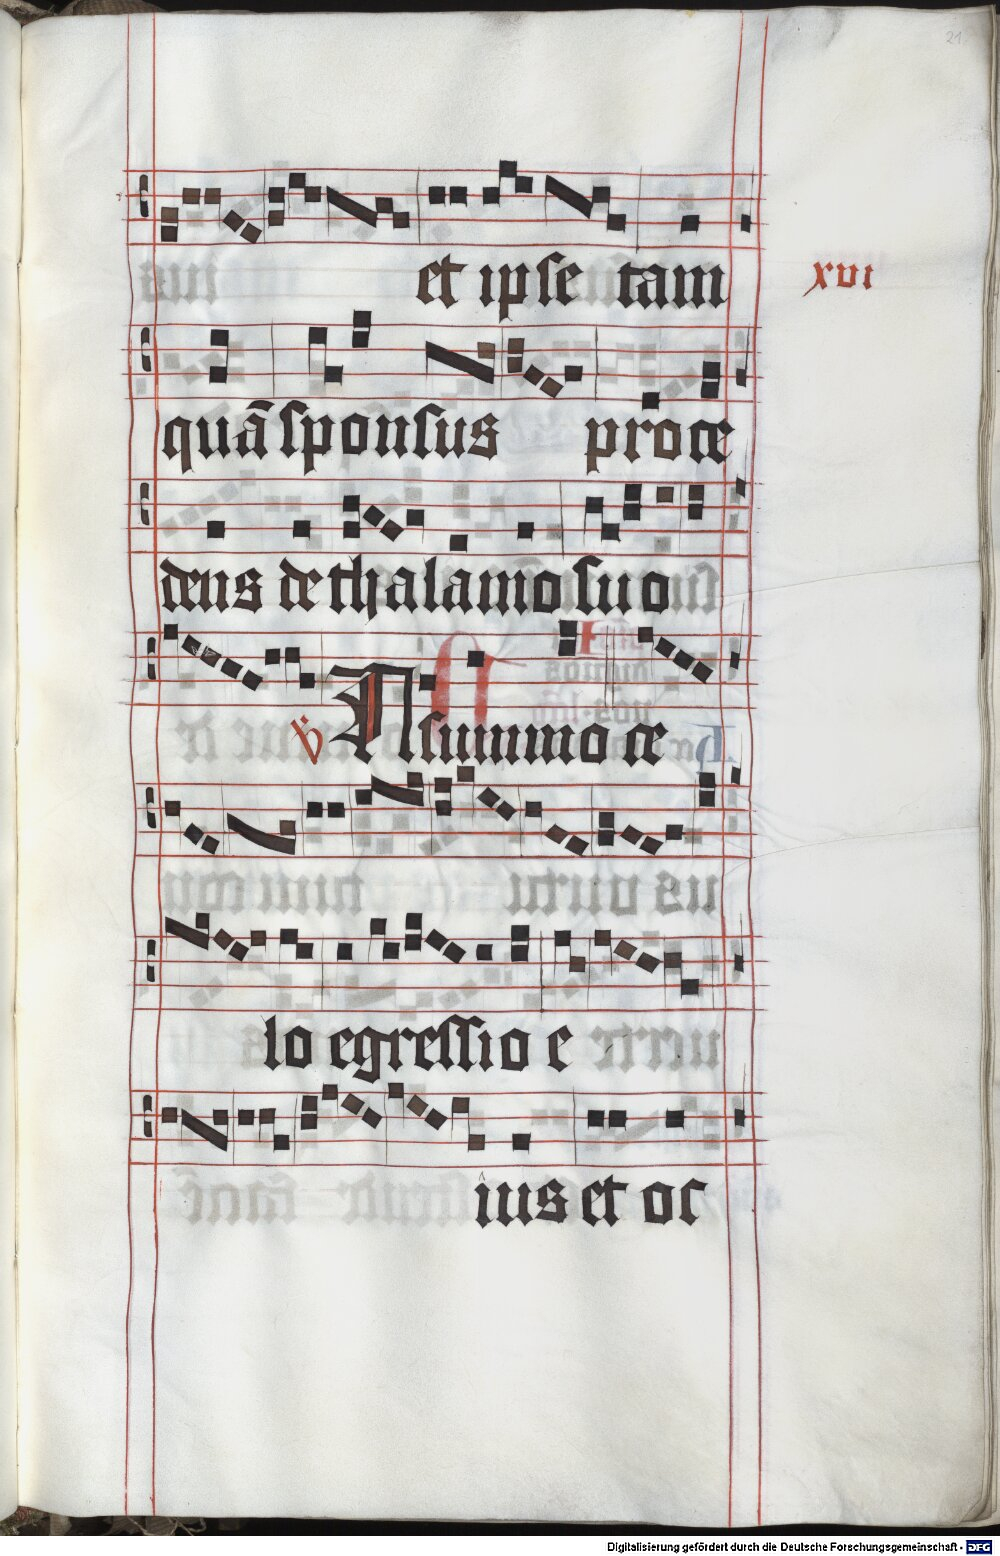 21
et ipse tam
xvi
quā sponsus proce
dens de thalamo suo
℣ A summo ce
lo egressio e
ius et oc
Digitalisierung gefördert durch die Deutsche Forschungsgemeinschaft - DFG